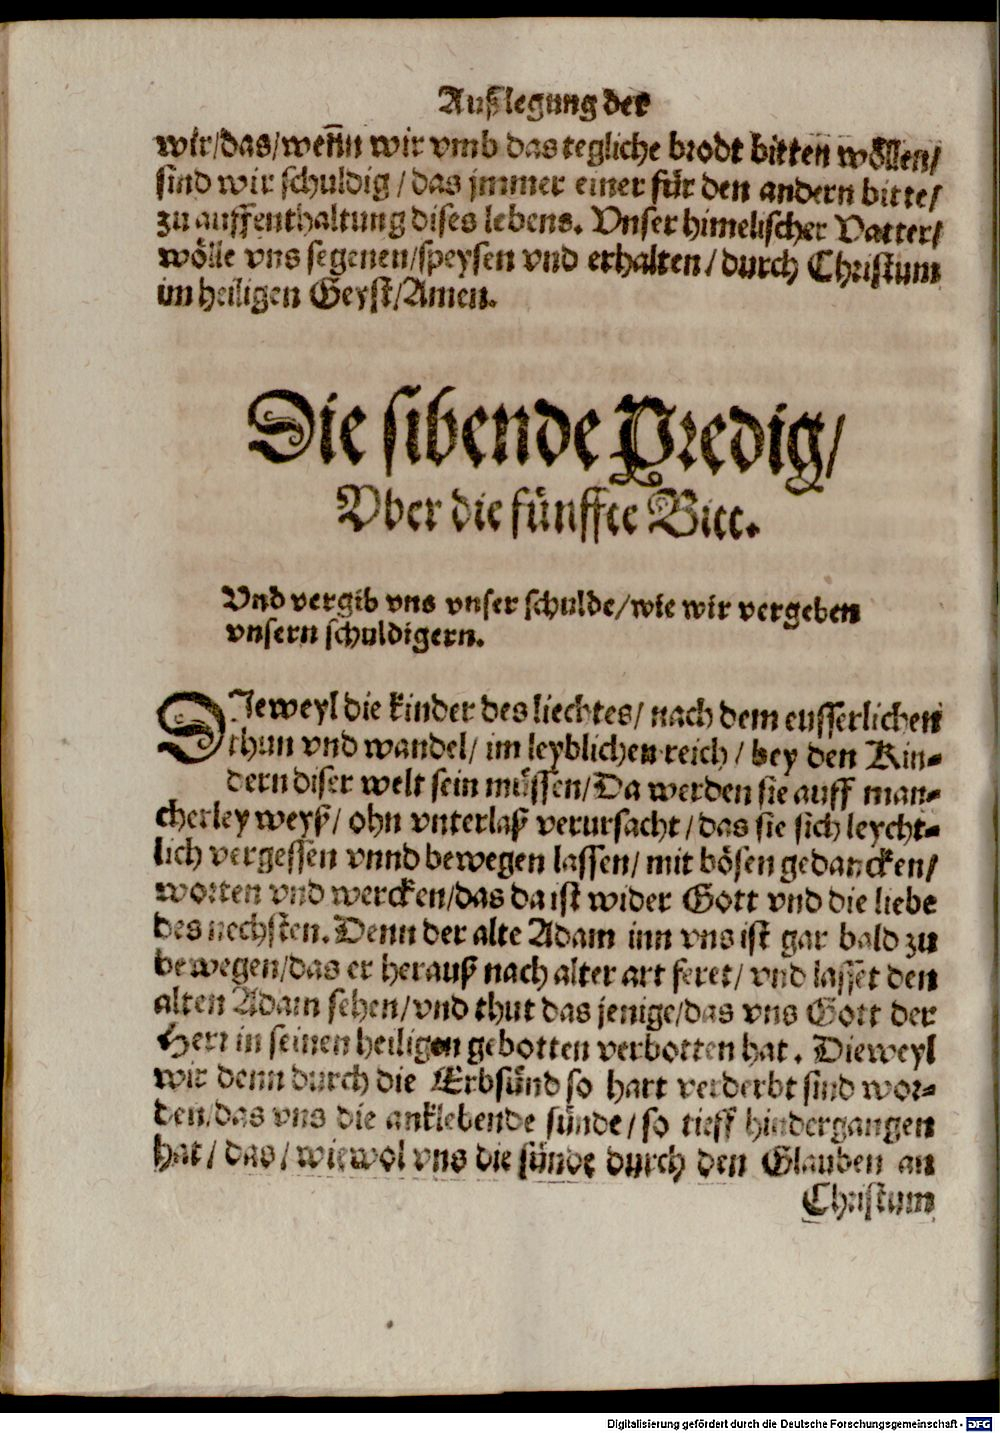 Außlegung der
wir/das/wenn̄ wir vmb das tegliche brodt bitten wöllen/
sind wir schuldig/das jmmer einer für den andern bitte/
zu auffenthaltung dises lebens. Vnser himelischer Vatter/
wölle vns segenen/speysen vnd erhalten/durch Christum
im heiligen Geyst/Amen.
Die sibende Predig/
Vber die fünffte Bitt.
Vnd vergib vns vnser schulde/wie wir vergeben
vnsern schuldigern.
DJeweyl die kinder des liechtes/ nach dem eusserlichen
thun vnd wandel/ im leyblichen reich/ bey den Kin-
dern diser welt sein müssen/Da werden sie auff man-
cherley weyß/ ohn vnterlaß verursacht/das sie sich leycht-
lich vergessen vnnd bewegen lassen/ mit bösen gedancken/
worten vnd wercken/das da ist wider Gott vnd die liebe
des nechsten. Denn der alte Adam inn vns ist gar bald zu
bewegen/das er herauß nach alter art feret/ vnd lasset den
alten Adam sehen/vnd thut das jenige/das vns Gott der
Herr in seinen heiligen gebotten verbotten hat. Dieweyl
wir denn durch die Erbsünd so hart verderbt sind wor-
den/das vns die anklebende sünde/so tieff hindergangen
hat/ das/ wiewol vns die sünde durch den Glauben an
Christum
Digitalisierung gefördert durch die Deutsche Forschungsgemeinschaft - DFG